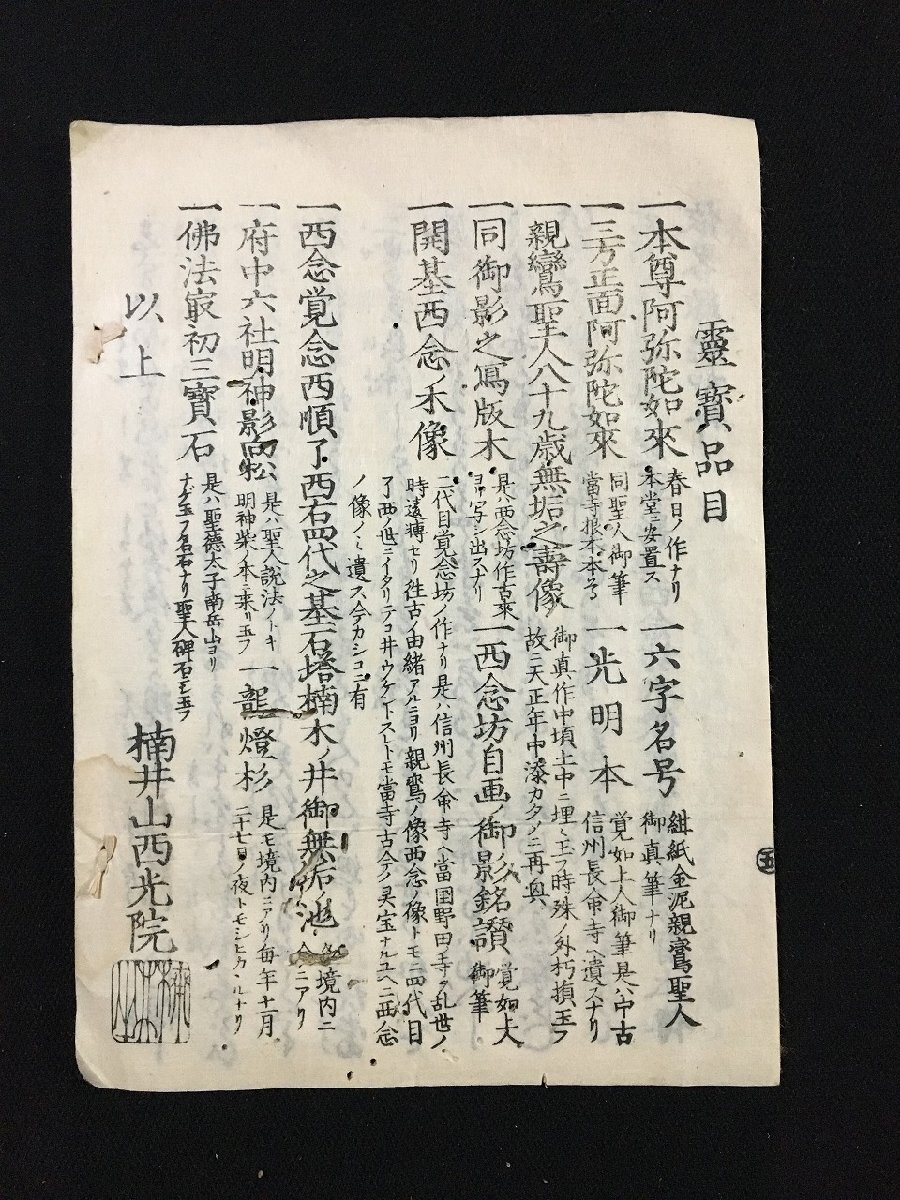 靈寳品目
一本尊阿弥陀如來 春日ノ作ナリ 本堂ニ安置ス 一六字名号 紺紙金泥親鸞聖人 御真筆ナリ
一三方正面阿弥陀如來 同聖人御筆 當寺根本本尊 一光明本 覚如上人御筆是ハ中古 信州長命寺ヘ遺スナリ
一親鸞聖人八十九歳無垢之壽像 御真作中頃土中ニ埋ミ玉フ時殊ノ外朽損玉フ 故ニ天正年中漆カタメニ再興
一同御影之寫版木 是ハ西念坊作古來 ヨリ写シ出スナリ 一西念坊自画御影銘讃 覚如上人 御筆
一開基西念ノ木像 二代目覚念坊ノ作ナリ是ハ信州長命寺ヘ當国野田ノ寺ヲ乱世ノ
時遠轉セリ往古ノ由緒アルニヨリ親鸞ノ像西念ノ像トモニ四代目
了西ノ世ニイタリテコ井ウケントストモ當寺古今ノ灵宝ナルユヘニ西念
ノ像ノミ遺ス今カシコニ有
一西念覚念西順了西右四代之墓石塔楠木ノ井御無垢池 今境内ニ ニアリ
一府中六社明神影向松 是ハ聖人説法ノトキ 明神柴本ニ來リ玉フ 一龍燈杉 是モ境内ニアリ毎年十一月 二十七日ノ夜トモシヒカヽルナリ
一佛法最初三寳石 是ハ聖徳太子南岳山ヨリ ナゲ玉フ名石ナリ聖人碑石ニシ玉フ
以上
楠井山西光院
五